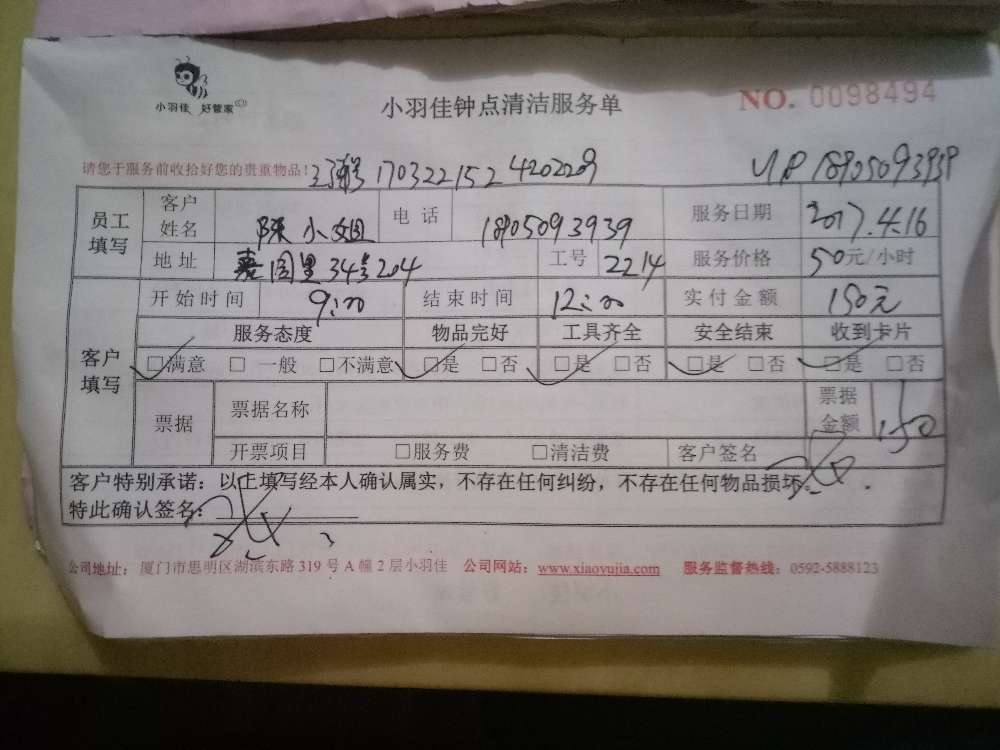 小羽佳 好管家
小羽佳钟点清洁服务单
NO. 0098494
请您于服务前收拾好您的贵重物品!
170322152420229 VIP 18905093939
员工填写 客户姓名 陈小姐 电话 18905093939 服务日期 2017.4.16
地址 嘉园里34号204 工号 2214 服务价格 50元/小时
客户填写 开始时间 9:00 结束时间 12:00 实付金额 150元
服务态度 物品完好 工具齐全 安全结束 收到卡片
□满意 □ 一般 □不满意 □是 □否 □是 □否 □是 □否 □是 □否
票据 票据名称 票据金额 150
开票项目 □服务费 □清洁费 客户签名
客户特别承诺：以上填写经本人确认属实，不存在任何纠纷，不存在任何物品损坏。
特此确认签名：
公司地址：厦门市思明区湖滨东路 319 号 A 幢 2 层小羽佳 公司网站：www.xiaoyujia.com 服务监督热线：0592-5888123